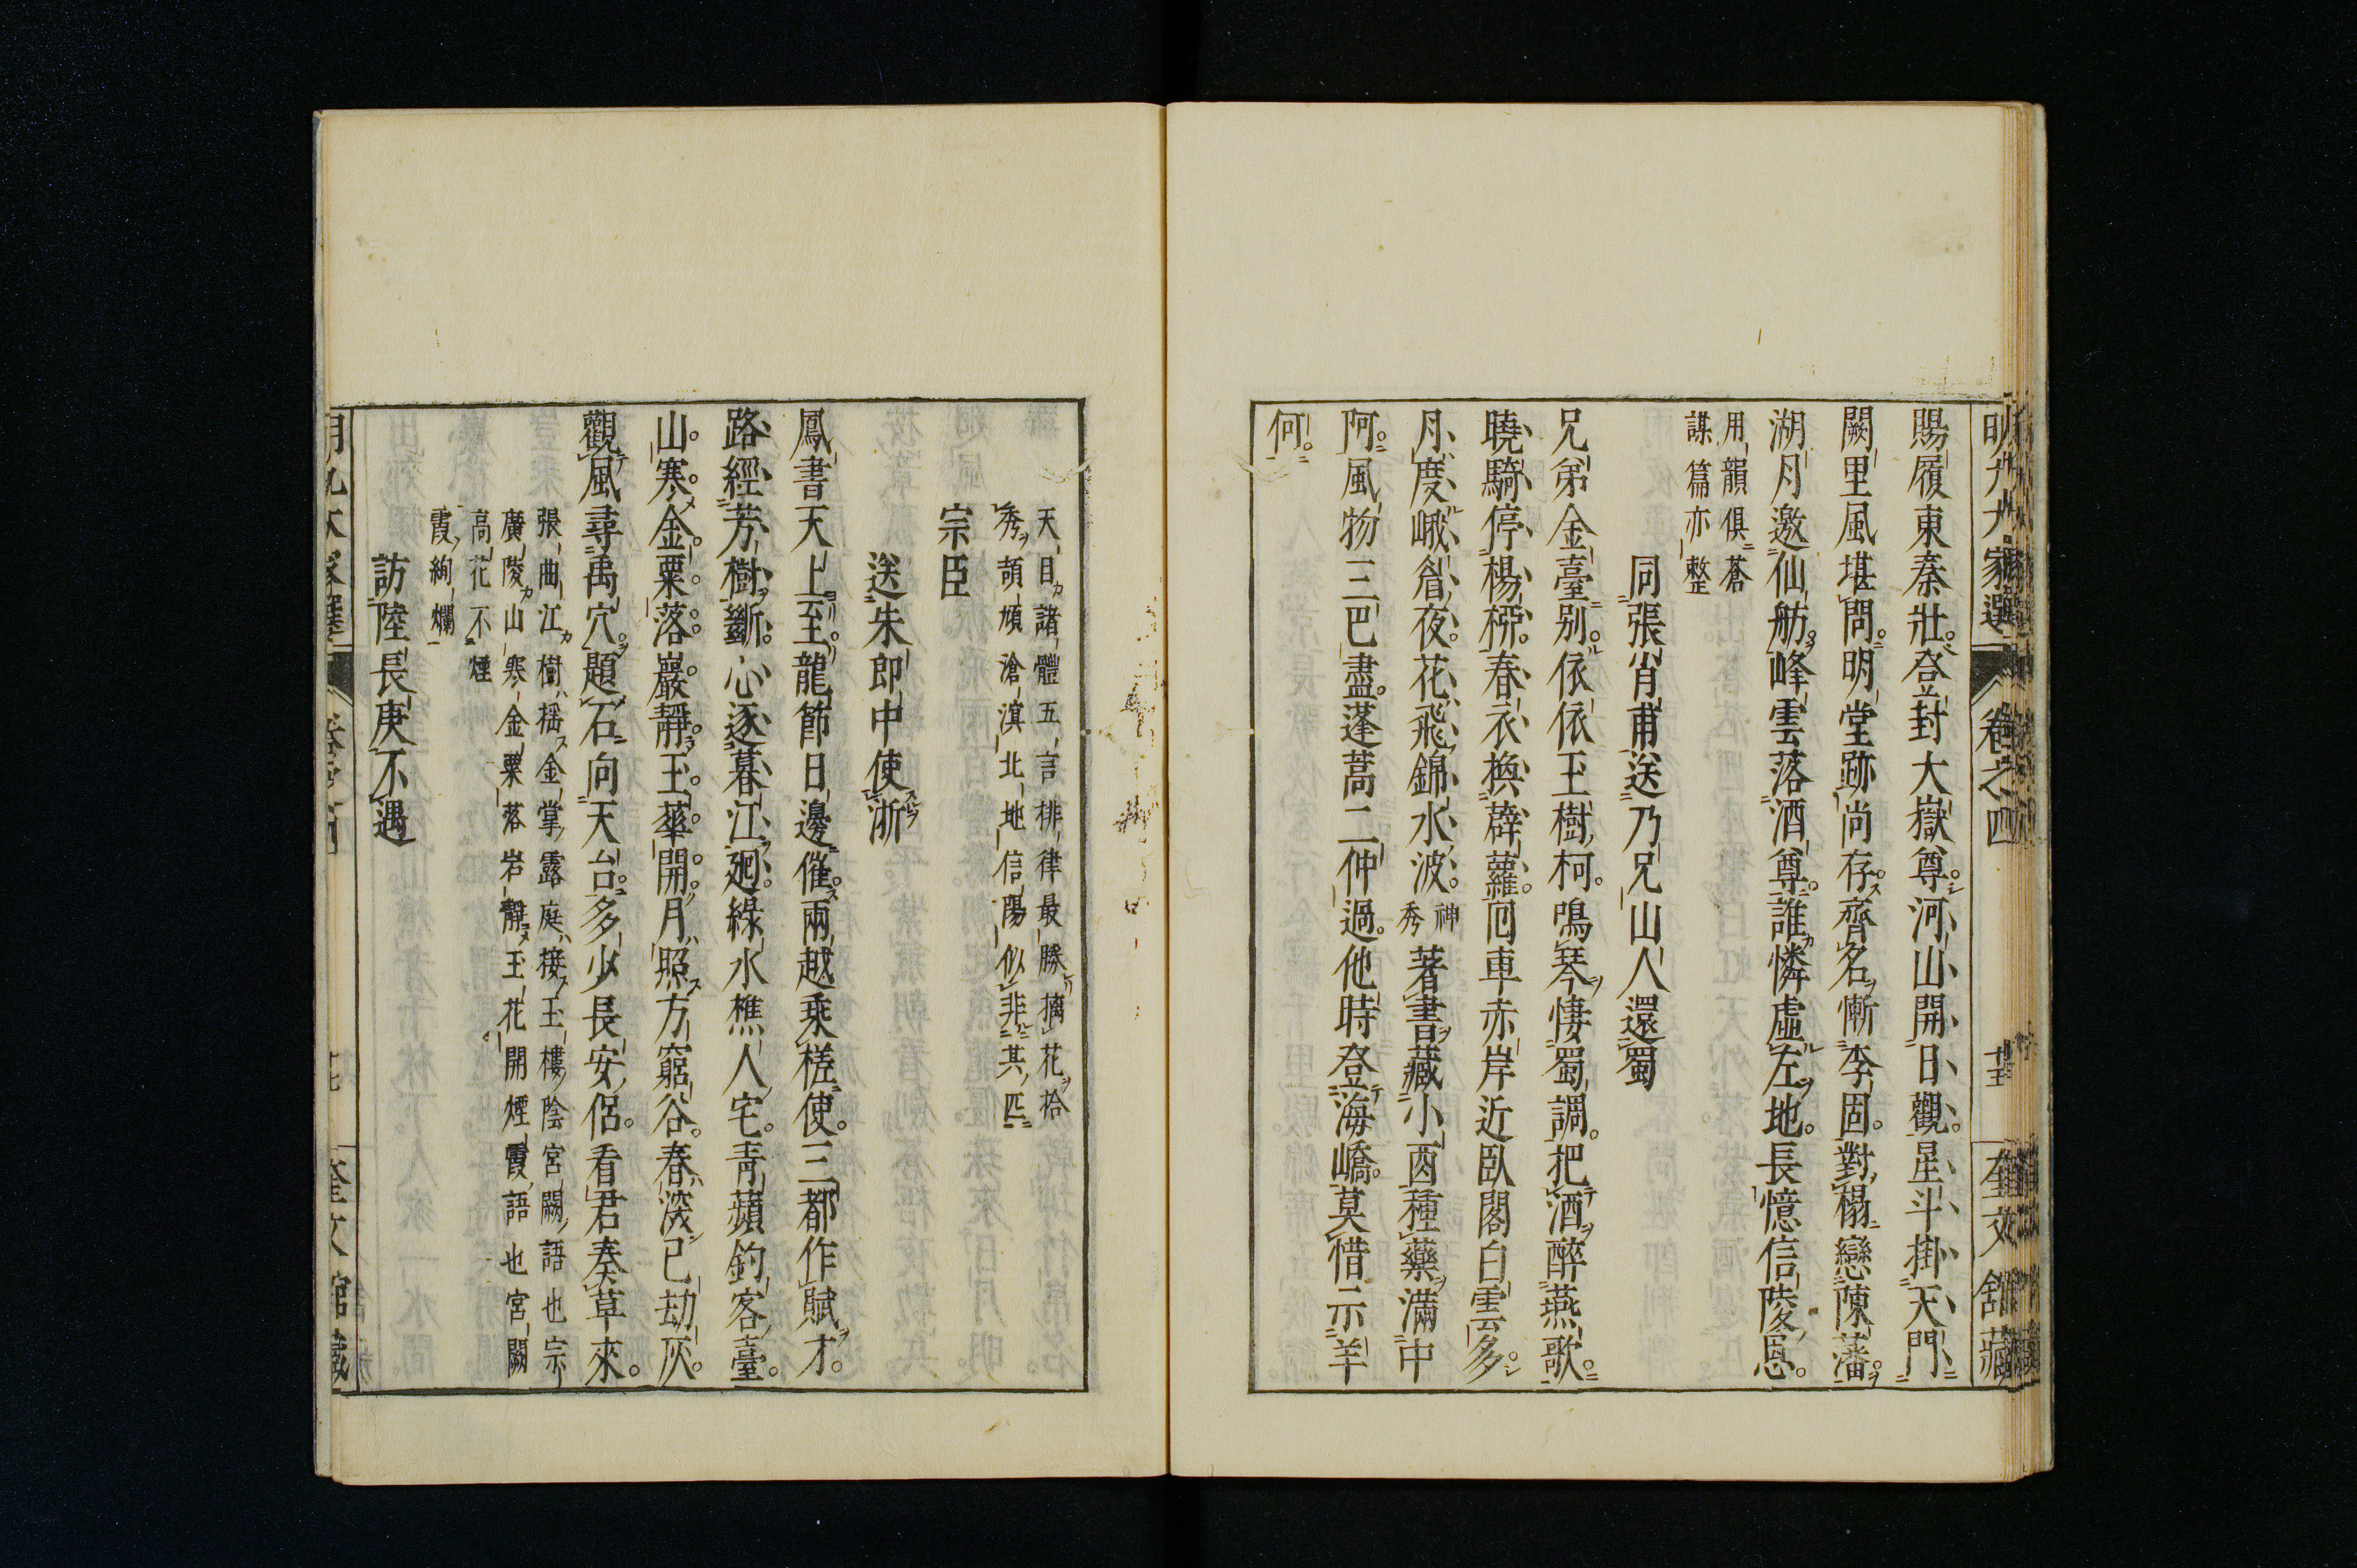 明九大家選 卷之四 奎文館藏
賜履東秦壯登封大嶽尊河山開日觀星斗掛天門
闕里風堪問明堂跡尚存齊名慚李固對榻戀陳蕃
湖月邀仙舫峰雲落酒尊誰憐虛左地長憶信陵恩
用韻俱蒼
謀篇亦整
同張肖甫送乃兄山人還蜀
兄弟金臺別依依玉樹柯鳴琴悽蜀調把酒醉燕歌
曉騎停楊柳春衣換薜蘿回車赤岸近臥閣白雲多
月度峨眉夜花飛錦水波神秀著書藏小酉種藥滿中
阿風物三巴盡蓬蒿二仲過他時登海嶠莫惜示羊
何
天目諸體五言排律最勝摘花拾
秀頡頏滄溟北地信陽似非其匹
宗臣
送朱郎中使浙
鳳書天上至龍節日邊催兩越乘槎使三都作賦才
路經芳樹斷心逐暮江廻綠水樵人宅青蘋釣客臺
山寒金粟落巖靜玉華開月照方窮谷春深已劫灰
觀風尋禹穴題石向天台多少長安侶看君奏草來
張曲江樹搖金掌露庭接玉樓陰宮闕語也宗
廣陵山寒金粟落岩靜玉花開煙霞語也宮闕
高花不煙
霞絢爛
訪陸長庚不遇